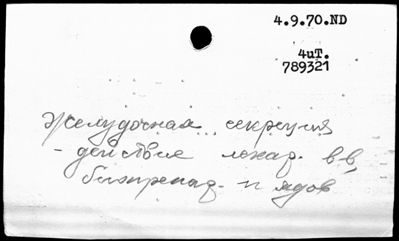 4.9.70.ND
4иТ.
789321
Желудочная секреция
- действие лекар. в-в,
биопрепар. и ядов